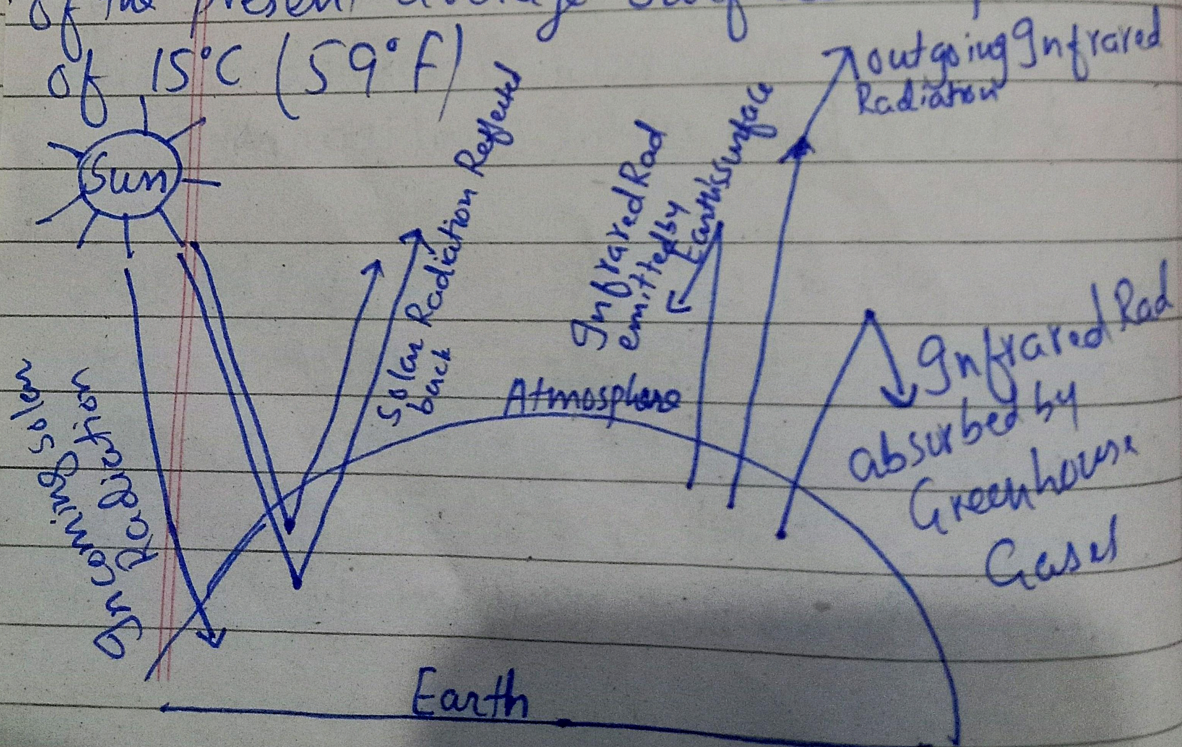 of the present average
of 15°C (59°F)
Sun
Incoming Solar
Radiation
Solar Radiation Reflected
back
Infrared Rad
emitted by
Earth's surface
outgoing Infrared
Radiation
Infrared Rad
absurbed by
Greenhouse
Gases
Atmosphere
Earth